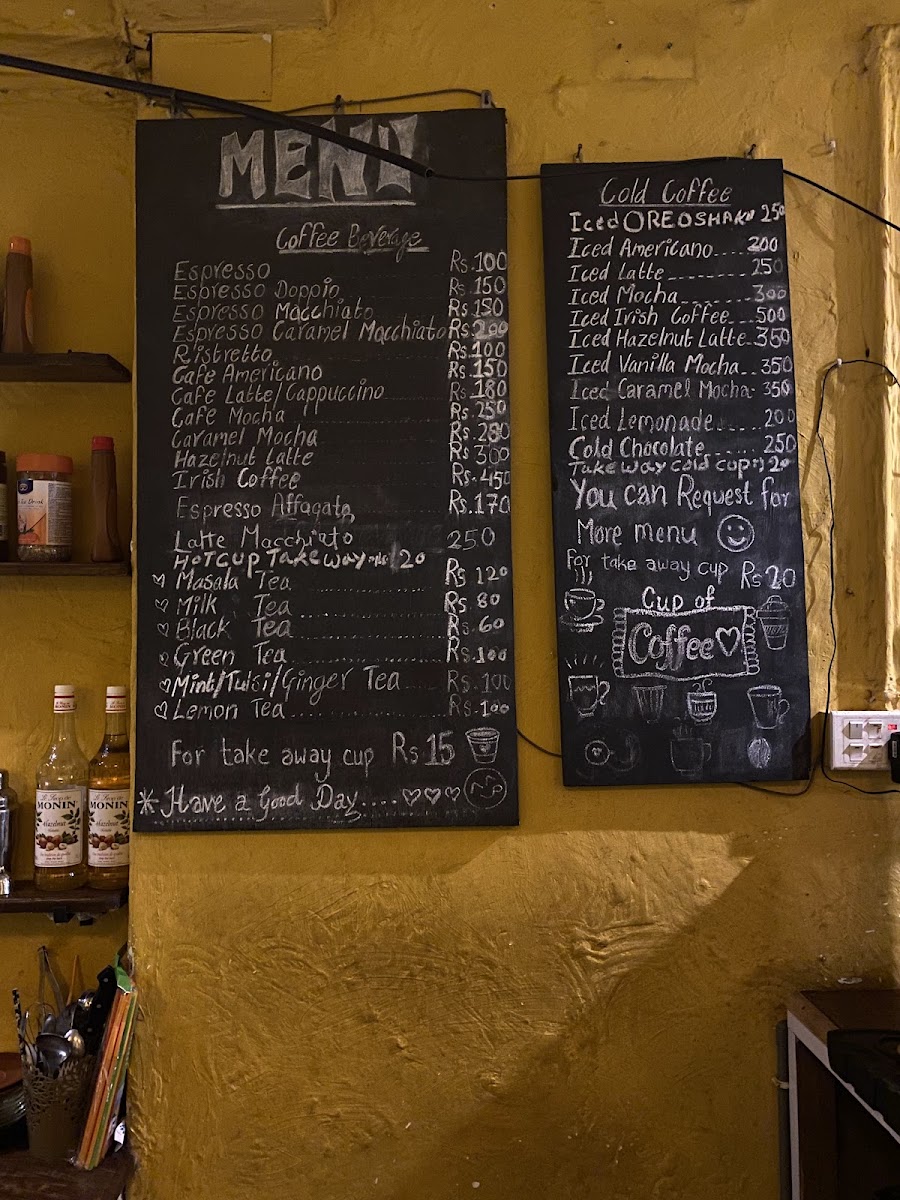 MENU
Coffee Beverage
Espresso Rs.100
Espresso Doppio Rs.150
Espresso Macchiato Rs.150
Espresso Caramel Macchiato Rs.200
Ristretto Rs.100
Cafe Americano Rs.150
Cafe Latte/Cappuccino Rs.180
Cafe Mocha Rs.250
Caramel Mocha Rs.280
Hazelnut Latte Rs 300
Irish Coffee Rs.450
Espresso Affagato Rs.170
Latte Macchiato 250
HOT CUP Take way 20
Masala Tea Rs 120
Milk Tea Rs 80
Black Tea Rs.60
Green Tea Rs.100
Mint/Tulsi/Ginger Tea Rs.100
Lemon Tea Rs.100
For take away cup Rs 15
*Have a Good Day....
Cold Coffee
Iced OREOSHAKE 250
Iced Americano 200
Iced Latte 250
Iced Mocha 300
Iced Irish Coffee 500
Iced Hazelnut Latte 350
Iced Vanilla Mocha 350
Iced Caramel Mocha 350
Iced Lemonade 200
Cold Chocolate 250
Take way cold cup 20
You can Request for
More menu
For take away cup Rs 20
Cup of
Coffee
MONIN
Hazelnut
MONIN
Hazelnut